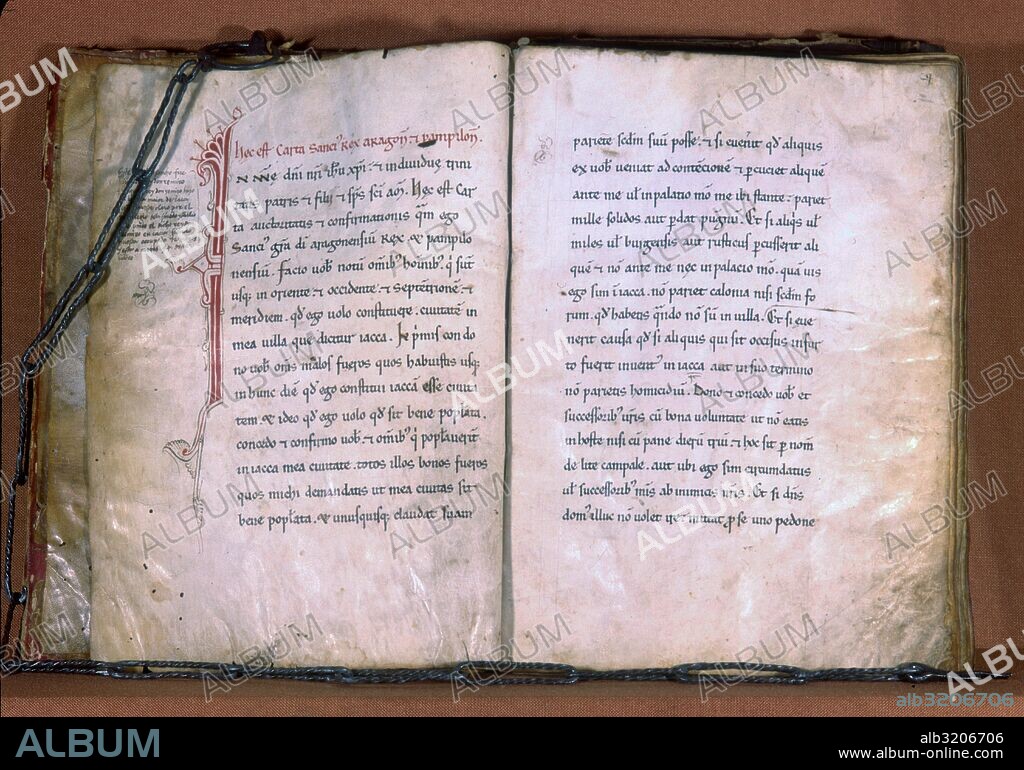 hec est Carta Sanci⁹ Rex aragoñ ⁊ pampiloñ.
dn̄i nr̄i ihū xp̄i ⁊ individuę trini
patris ⁊ filii ⁊ sp̄s sc̄i am̄. Hec est Car
ta auctoritatis ⁊ confirmationis qm̄ ego
Sanci⁹ gr̄a dī aragonensiū Rex ⁊ pampilo
nensiū. facio vob̄ notū omīb⁹ hoīnib⁹ q̄ sūt
usq; in oriente ⁊ occidente ⁊ septētrionē ⁊
meridiem. qd̄ ego volo constituere civitatē in
mea villa que dicitur iacca. p̄mis con do
no vob̄ om̄s malos fueros quos habuistis usq;
in hunc diē qd̄ ego constitui iaccā esse civi
tem ⁊ ideo qd̄ ego volo qd̄ sit bene pop̄lata.
concedo ⁊ confirmo vob̄ ⁊ omīb⁹ q̄ pop̄laverīt
in iacca mea civitate. totos illos bonos fueros
quos michi demandatis ut mea civitas sit
bene pop̄lata. ⁊ unusquisq; claudat suam
pariete scd̄m suū posse. ⁊ si evenit qd̄ aliquis
ex vob̄ veniat ad contēcionē ⁊ p̄cuciet aliquē
ante me ul̄ in palatio mō me ibi stante. pariet
mille solidos aut p̄dat pugnū. Et si aliq̄s ul̄
miles ul̄ burgensis aut rusticus p̄cusserit ali
quē ⁊ nō ante me nec in palacio mō. quāvis
ego sim ī iacca. nō pariet calonia nisi scd̄m fo
rum. qd̄ habetis qn̄do nō sū in villa. Et si eve
nerit causa qd̄ si aliquis qui sit occisus in fur
to fuerit invent⁹ in iacca aut in suo termino
nō parietis homicidiū. Dono ⁊ concedo vob̄ ⁊
successorib⁹ vr̄is cū bona voluntate ut nō eatis
in hoste nisi cū pane dierū triū ⁊ hoc sit p̄ nom̄
de lite campale. aut ubi ego sim circumdatus
ul̄ successorib⁹ meis ab inimicis Et si dn̄s
dom⁹ illuc nō volet p̄ se uno pedone
ALBUM
alb3206706
alb3206706
www.album-online.com